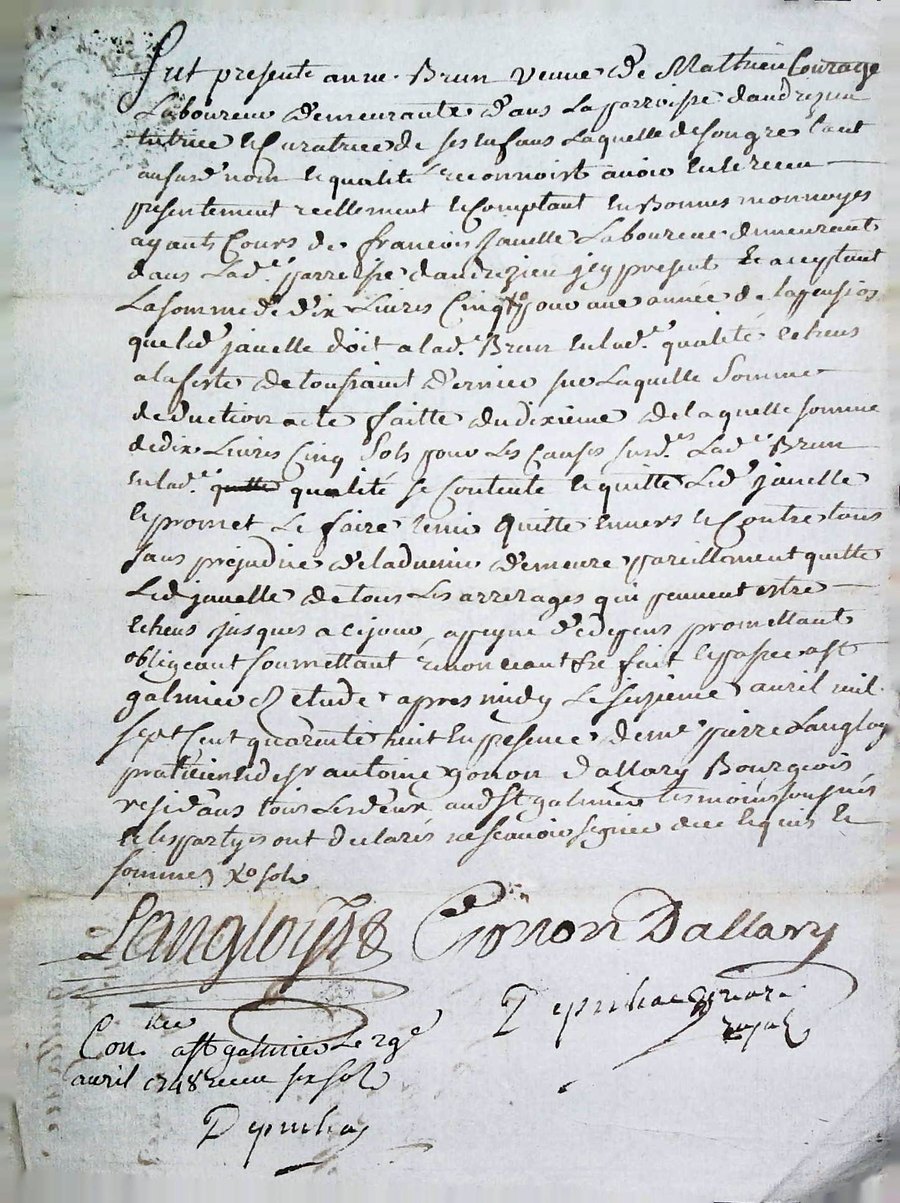 Fut presente anne Brun veuve de Mathieu Courage
Laboureur demeurante dans La parroisse dandrezieu
tutrice et Curatrice de ses Enfans Laquelle de son gre tant
aususd nom et qualité reconnoist avoir Eu et receu
presentement reellement et Comptant En Bonnes monnoyes
ayants Cours de francois javelle Laboureur demeurant
dans Lad.e parroisse dandrezieu jcy present et acceptant
La somme de dix Livres Cinq pour une année de la pension
que led javelle doit a lad.e Brun En lad.e qualité Echeus
a la feste de toussaint dernier sur Laquelle Somme
deduction a este faitte du dixieme de laquelle somme
de dix Livres Cinq Sols pour Les Causes susd.es Lad.e Brun
En lad.e quitte qualité se Contente et quitte Led javelle
et promet Le faire tenir quitte Envers et Contre tous
sans prejudice de ladvenir demeure pareillement quitte
Led javelle de tous Les arrerages qui peuvent estre
Echeus jusques a ce jour, a peyne de depens promettant
obligeant soumettant renonceant &re fait et passé a st
galmier Etude apres midy Le sixieme avril mil
sept Cent quarente huit En presence de me pierre Langloy
praticien et de sr antoine gonon dallary Bourgeois
residans tous Les deux aud st galmier tesmoins soussignés
et les partyes ont declarés ne scavoir signer de ce Enquis et
sommés sols
Langloys Gonon Dallary
Depinhac
royal
Con. a st galmier Le
avril 1748 receu six sols
Depinhac